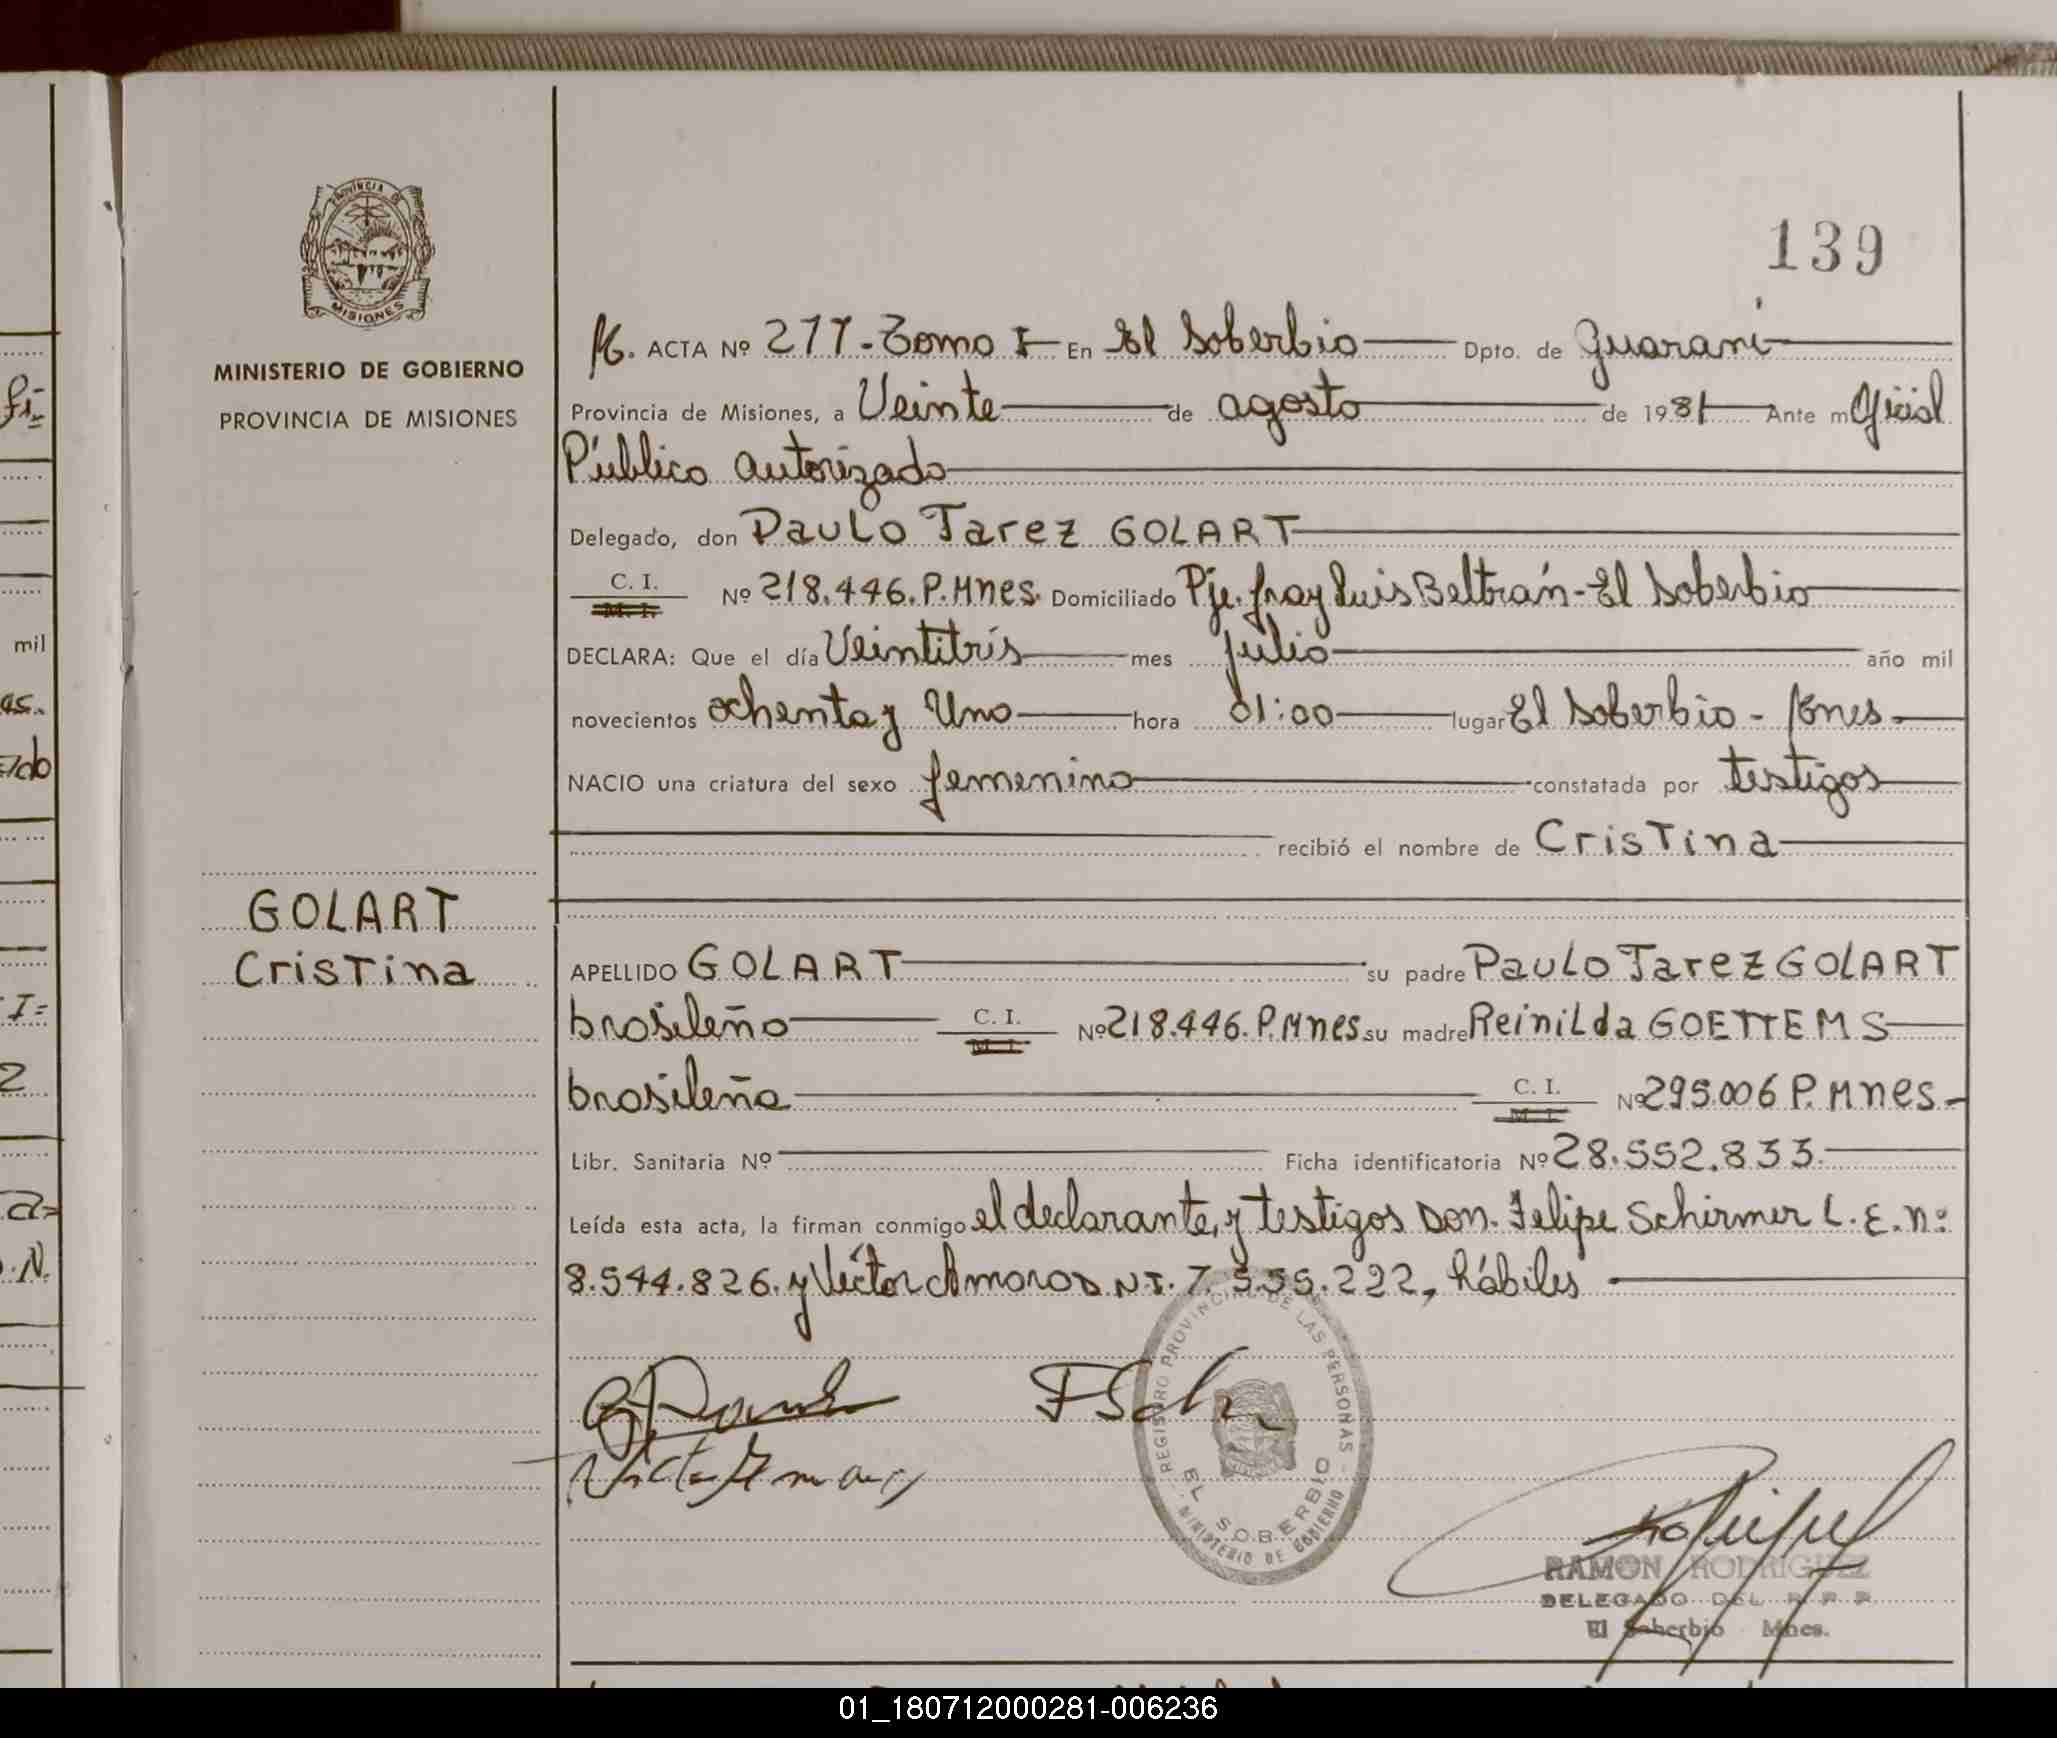 PROVINCIA DE
MISIONES
MINISTERIO DE GOBIERNO
PROVINCIA DE MISIONES
139
ACTA Nº 277-Tomo I En El Soberbio Dpto. de Guaraní
Provincia de Misiones, a Veinte de agosto de 1981 Ante m Oficial
Público autorizado
Delegado, don Paulo Tarez GOLART
C. I. M. I. Nº 218.446.P.Mnes. Domiciliado Pje. fray Luis Beltrán-El Soberbio
DECLARA: Que el día Veintitrís mes julio año mil
novecientos ochenta y Uno hora 01:00 lugar El Soberbio - Mnes.
NACIO una criatura del sexo femenino constatada por testigos
recibió el nombre de Cristina
GOLART
Cristina
APELLIDO GOLART su padre Paulo Tarez GOLART
brasileño C. I. M. I. Nº 218.446.P.Mnes su madre Reinilda GOETTEMS
brasileña C. I. M. I. Nº 295.006 P. Mnes.
Libr. Sanitaria Nº Ficha identificatoria Nº 28.552.833.
Leída esta acta, la firman conmigo el declarante, y testigos Don. Felipe Schirmer L.E.nº
8.544.826. y Víctor Amoros N.I. 7.555.222, hábiles
REGISTRO PROVINCIAL DE LAS PERSONAS
EL SOBERBIO
MINISTERIO DE GOBIERNO
RAMON RODRIGUEZ
DELEGADO DEL R P P
El Soberbio Mnes.
mil
as.
2
01_180712000281-006236